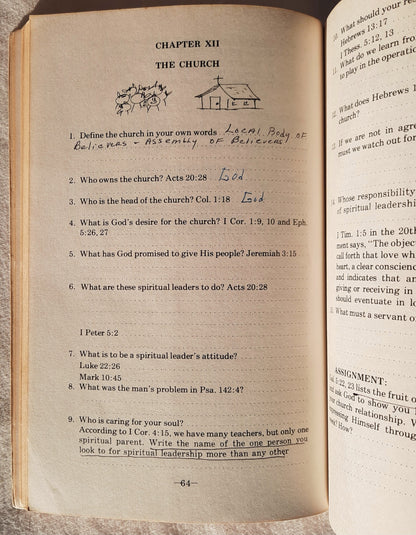 CHAPTER XII
THE CHURCH
1. Define the church in your own words Local Body of
Believers - Assembly of Believers
2. Who owns the church? Acts 20:28 God
3. Who is the head of the church? Col. 1:18 God
4. What is God's desire for the church? I Cor. 1:9, 10 and Eph.
5:26, 27
5. What has God promised to give His people? Jeremiah 3:15
6. What are these spiritual leaders to do? Acts 20:28
I Peter 5:2
7. What is to be a spiritual leader's attitude?
Luke 22:26
Mark 10:45
8. What was the man's problem in Psa. 142:4?
9. Who is caring for your soul?
According to I Cor. 4:15, we have many teachers, but only one
spiritual parent. Write the name of the one person you
look to for spiritual leadership more than any other
—64—
10. What should your re
Hebrews 13:17
I Thess. 5:12, 13
What do we learn from
to play in the operation
What does Hebrews 1
church?
If we are not in agre
must we watch out for
Whose responsibility
of spiritual leadership
I Tim. 1:5 in the 20th
ment says, "The object
call forth that love wh
heart, a clear conscienc
and indicates that an
giving or receiving in
should eventuate in lo
What must a servant o
ASSIGNMENT:
5:22, 23 lists the fruit o
ask God to show you
your church relationship. W
expressing Himself throug
How?